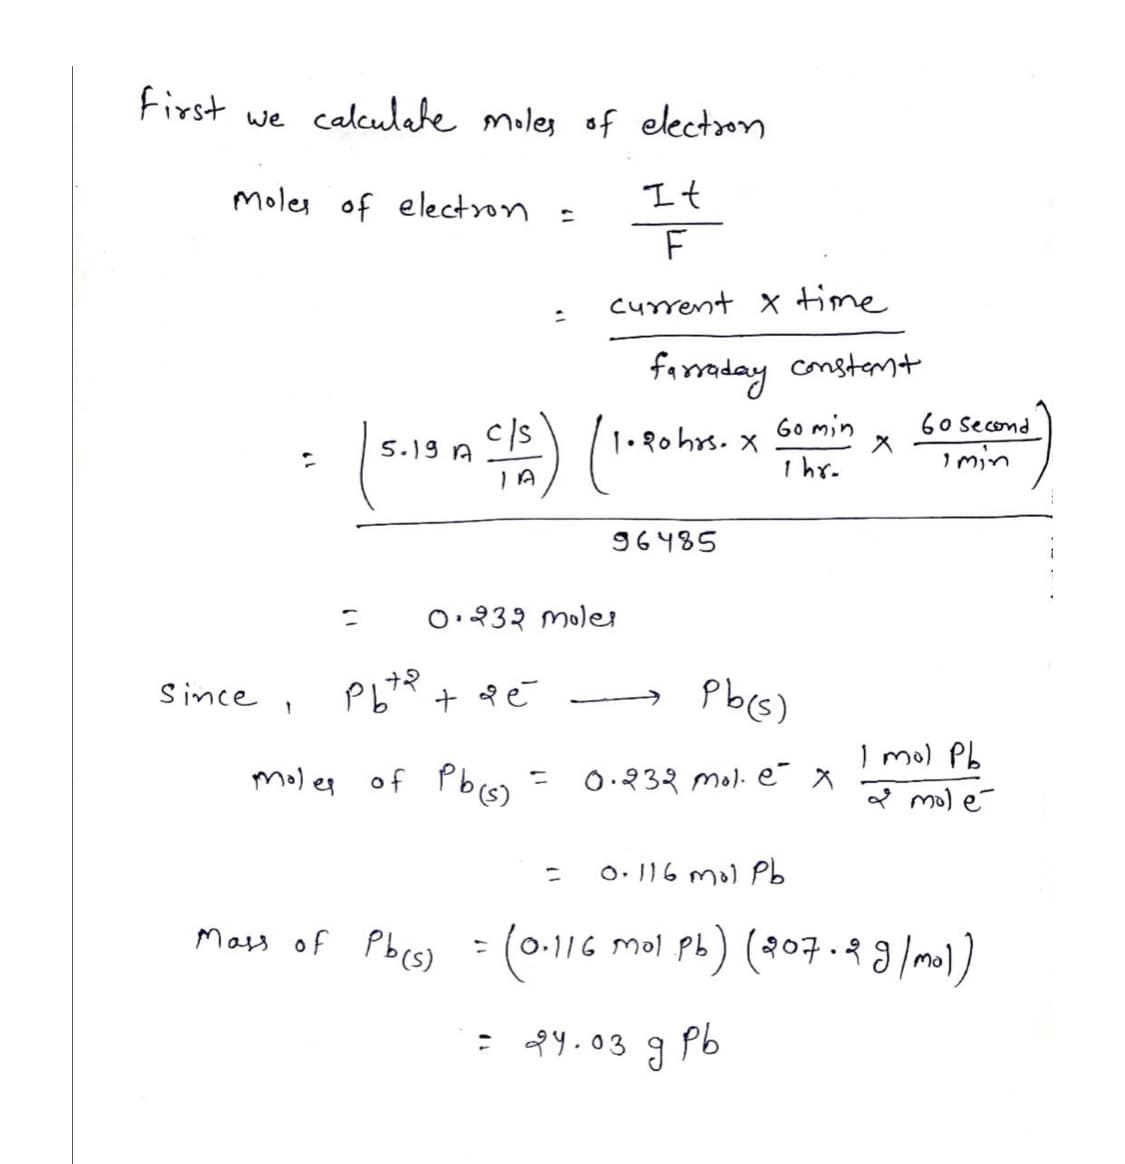 First we calculate moles of electron
Moles of electron = It / F
= current x time / farraday constant
= (5.19 A C/S / 1 A) (1.20 hrs. x 60 min / 1 hr. x 60 second / 1 min) / 96485
= 0.232 moles
Since, Pb+2 + 2e- → Pb(s)
moles of Pb(s) = 0.232 mol. e- x 1 mol Pb / 2 mol e-
= 0.116 mol Pb
Mass of Pb(s) = (0.116 mol Pb) (207.2 g/mol)
= 24.03 g Pb